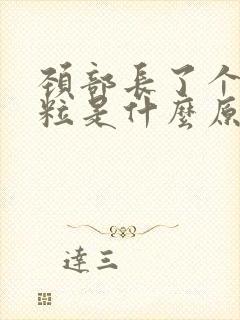 頸部長了个
粒是什麼原
達三